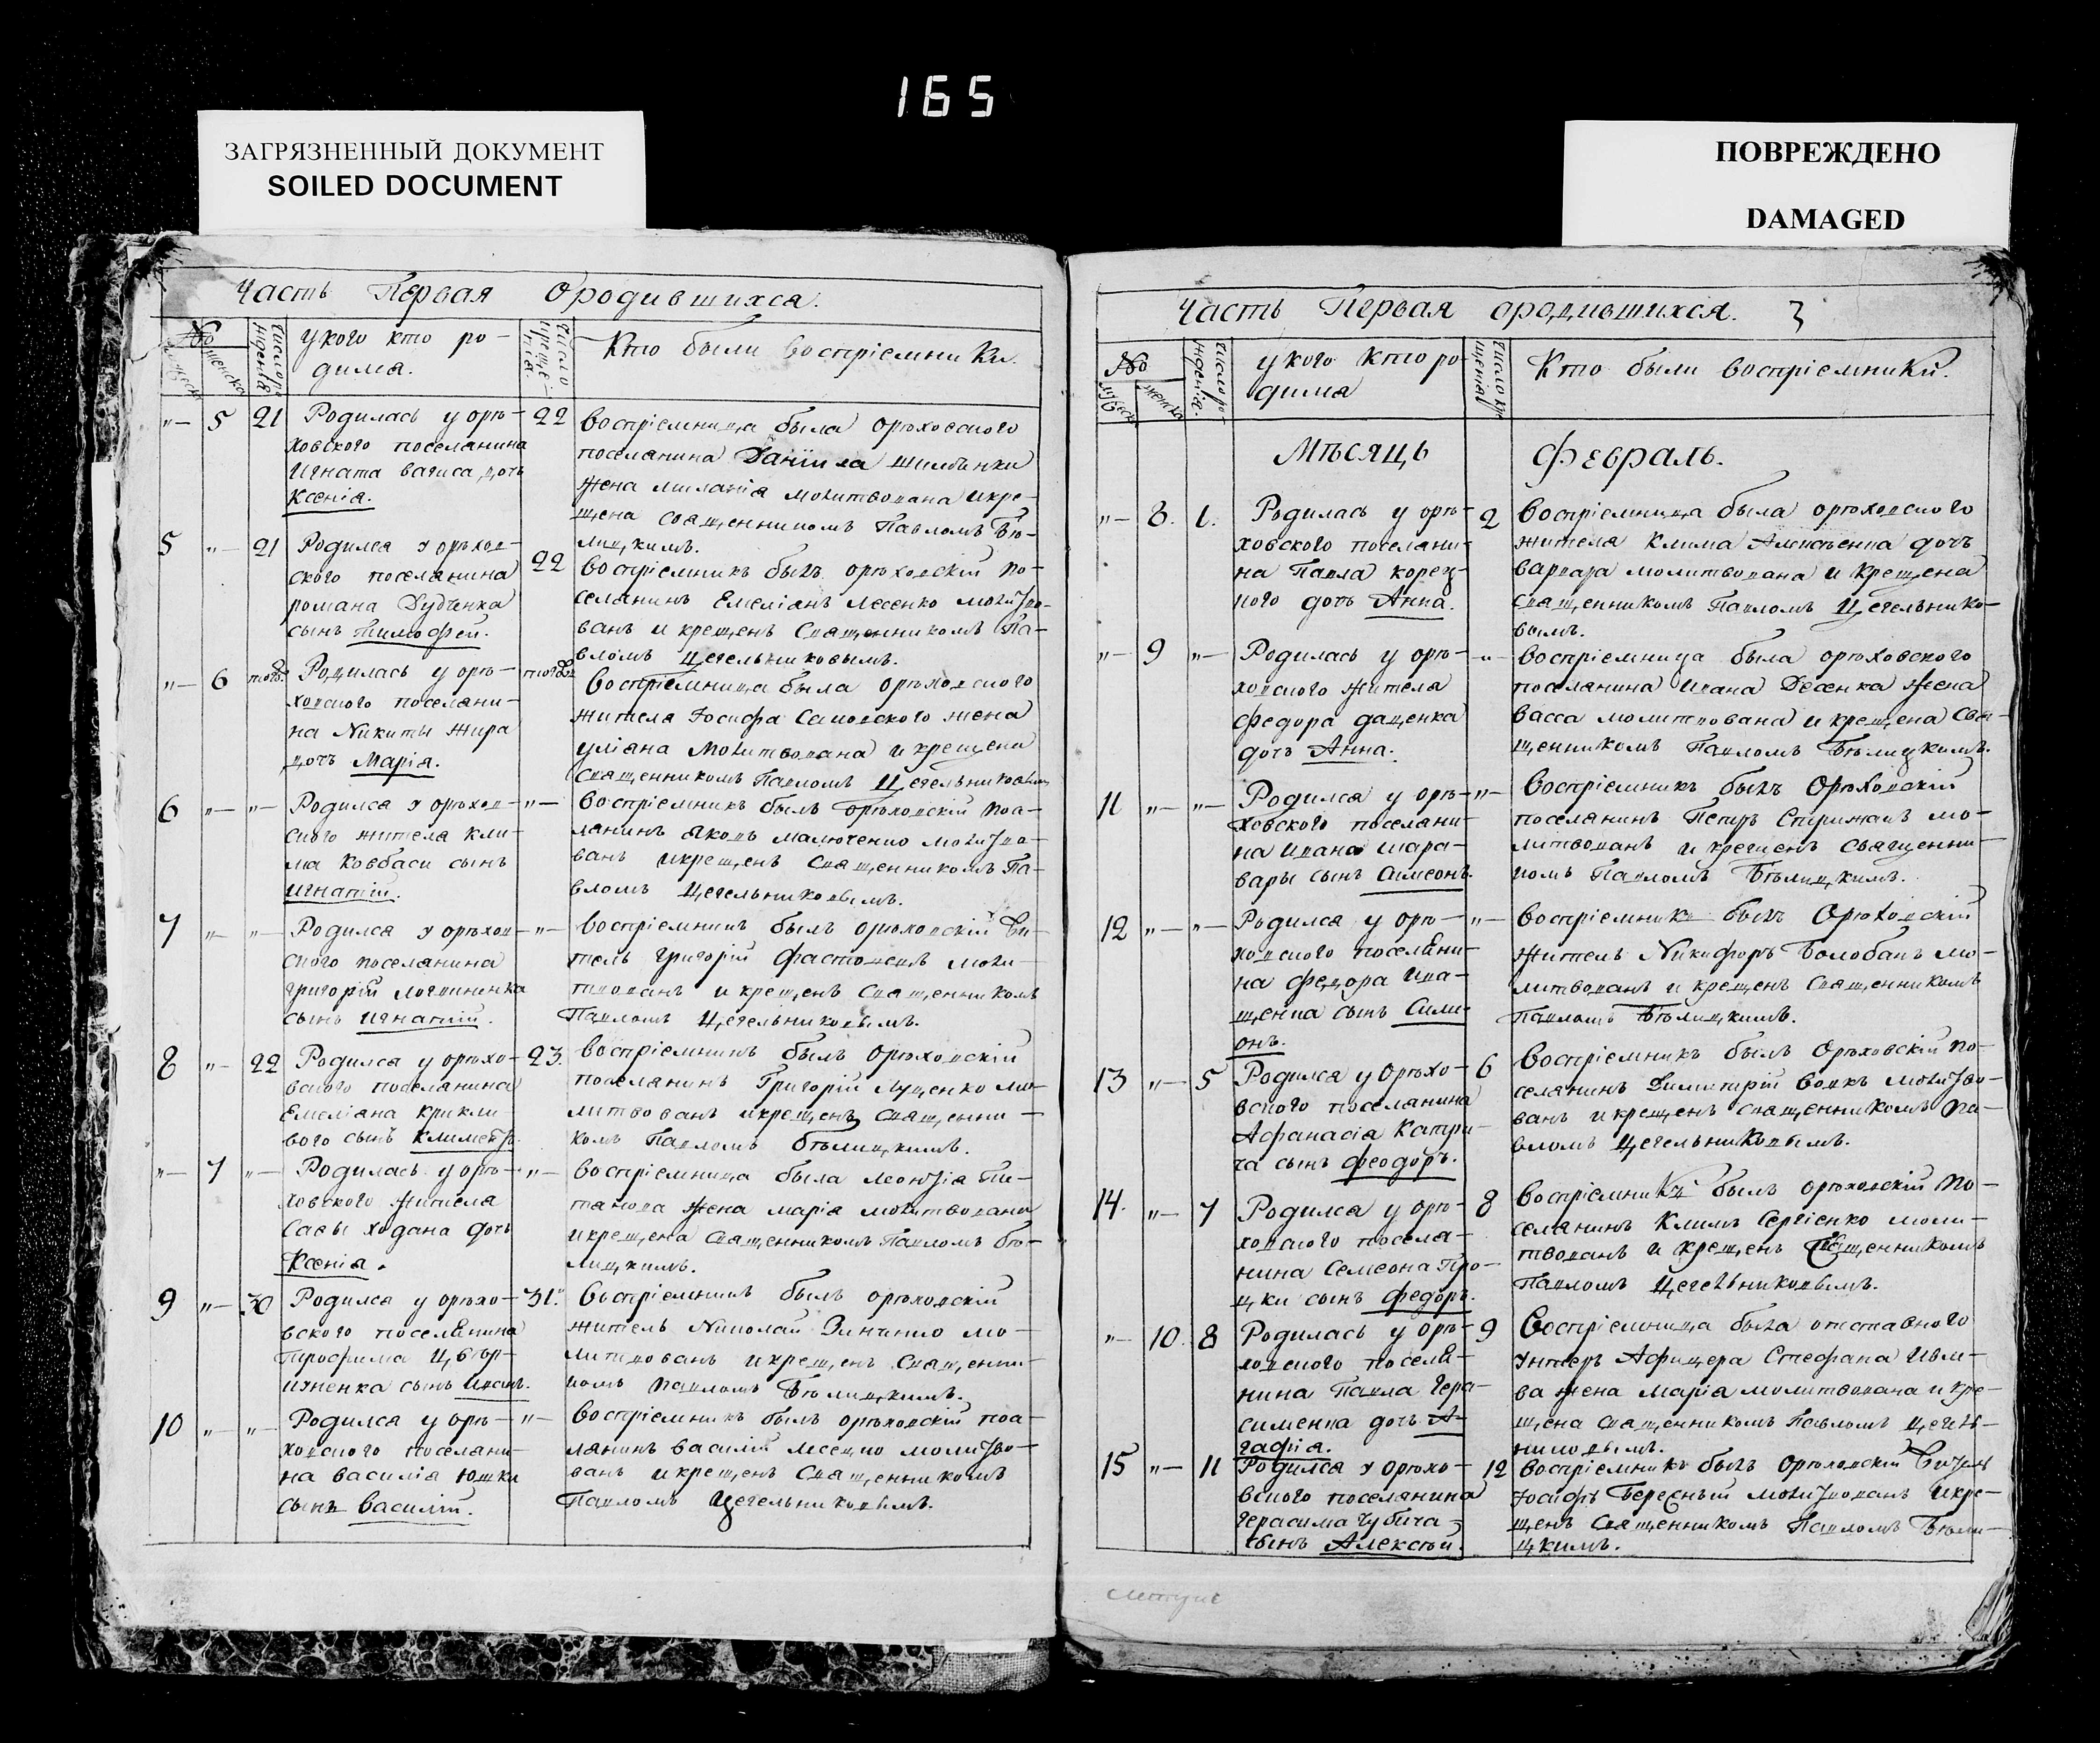 165
ЗАГРЯЗНЕННЫЙ ДОКУМЕНТ
SOILED DOCUMENT
ПОВРЕЖДЕНО
DAMAGED
Часть Первая Ородившихся.
№
укого кто ро-
дился.
Кто были Воспріемники.
"— 5 21 Родилась у орѣ- 22
ховского поселянина
Игната дочь
Ксенія.
Воспріемница была орѣховского
поселянина Даніила
жена миланія молитвована икре-
щена священникомъ Павломъ Бѣ-
лицкимъ.
5 "— 21 Родился у орѣхов- 22
ского поселянина
романа Дудченка
сынъ тимофей.
Воспріемникъ былъ орѣховскій по-
селянинъ Емеліанъ Лесенко молитво-
ванъ и крещенъ Священникомъ Па-
вломъ Цегельниковымъ.
"— 6 тогож. Родилась у орѣ-
ховского поселяни-
на Никиты жира
дочь Марія.
Воспріемница была орѣховского
жителя Іосифа жена
уліана молитвована и крещена
священникомъ Павломъ Цегельниковым
6 "— "— Родился у орѣхов- "—
ского жителя кли-
ма Ковбаси сынъ
Игнатій.
Воспріемникъ былъ орѣховскій посе-
лянинъ яковъ малюченко молитво-
ванъ икрещенъ священникомъ Па-
вломъ Цегельниковымъ.
7 "— "— Родился у орѣхов- "—
ского поселянина
григорій
сынъ Игнатій.
Воспріемникъ былъ орѣховскій жи-
тель григорій моли-
твованъ и крещенъ священникомъ
Павломъ Цегельниковымъ.
8 "— 22 Родился у орѣхо- 23.
вского поселянина
Емеліана крикли-
вого сынъ Климентъ.
Воспріемникъ былъ орѣховскій
поселянинъ Григорій Луценко мо-
литвованъ икрещенъ священни-
комъ Павломъ бѣлицкимъ.
"— 7 "— Родилась у орѣ- "—
ховского жителя
савы ходана дочь
Ксенія.
Воспріемница была
жена марія молитвована
икрещена священникомъ Павломъ бѣ-
лицкимъ.
9 "— 30 Родился у орѣхо- 31."
вского поселянина
Трофима
сынъ иванъ.
Воспріемникъ былъ орѣховскій
житель Николай Зинченко мо-
литвованъ икрещенъ священни-
комъ павломъ Бѣлицкимъ.
10 "— "— Родился у орѣ- "—
ховского поселяни-
на василія юшки
сынъ Василій.
Воспріемникъ былъ орѣховскій
василій молитво-
ванъ икрещенъ Священникомъ
Павломъ Цегельниковымъ.
Часть Первая ородившихся. 3
№
укого кто ро-
дился
Кто были воспріемники.
Мѣсяць Февраль.
"— 8. 1. Родилась у орѣ- 2
ховского поселяни-
на Павла корец-
кого дочь Анна.
Воспріемница была орѣховского
жителя Клима дочь
варвара молитвована и крещена
священникомъ Павломъ Цегельнико-
вымъ.
"— 9 "— Родилась у орѣ- "—
ховского жителя
федора даценка
дочь Анна.
Воспріемница была орѣховского
поселянина ивана Десенка жена
васса молитвована и крещена свя-
щенникомъ Павломъ Бѣлицкимъ.
11 "— "— Родился у орѣ- "—
ховского поселяни-
на ивана шара-
вары сынъ Симеонъ.
Воспріемникъ былъ Орѣховскій
поселянинъ Петръ мо-
литвованъ и крещенъ священни-
комъ Павломъ Бѣлицкимъ.
12 "— "— Родился у орѣ- "—
ховского поселяни-
на федора ива-
щенка сынъ Сими-
онъ.
Воспріемникъ былъ Орѣховскій
житель Никифоръ Болобанъ мо-
литвованъ и крещенъ священникомъ
Павломъ Бѣлицкимъ.
13 "— 5 Родился у Орѣхо- 6
вского поселянина
Афанасія Катри-
ча сынъ феодоръ.
Воспріемникъ былъ Орѣховскій по-
селянинъ Димитрій вовкъ молитво-
ванъ и крещенъ священникомъ Па-
вломъ Цегельниковымъ.
14. "— 7 Родился у орѣ- 8
ховского поселя-
нина Семеона Про-
цки сынъ федоръ.
Воспріемникъ былъ орѣховскій по-
селянинъ Климъ Сергіенко моли-
твованъ и крещенъ Священникомъ
Павломъ Цегельниковымъ.
"— 10. 8 Родилась у Орѣ- 9
ховского поселя-
нина Павла Гера-
сименка дочь А-
гафія.
Воспріемница была отставного
унтеръ Афицера Стефана
жена Марія молитвована и кре-
щена священникомъ Павломъ Цегель-
никовымъ.
15 "— 11 Родился у орѣхо- 12
вского поселянина
герасима
сынъ Алексѣй.
Воспріемникъ былъ Орѣховскій
Іосифъ Бережный молитвованъ икре-
щенъ Священникомъ Павломъ Бѣли-
цкимъ.